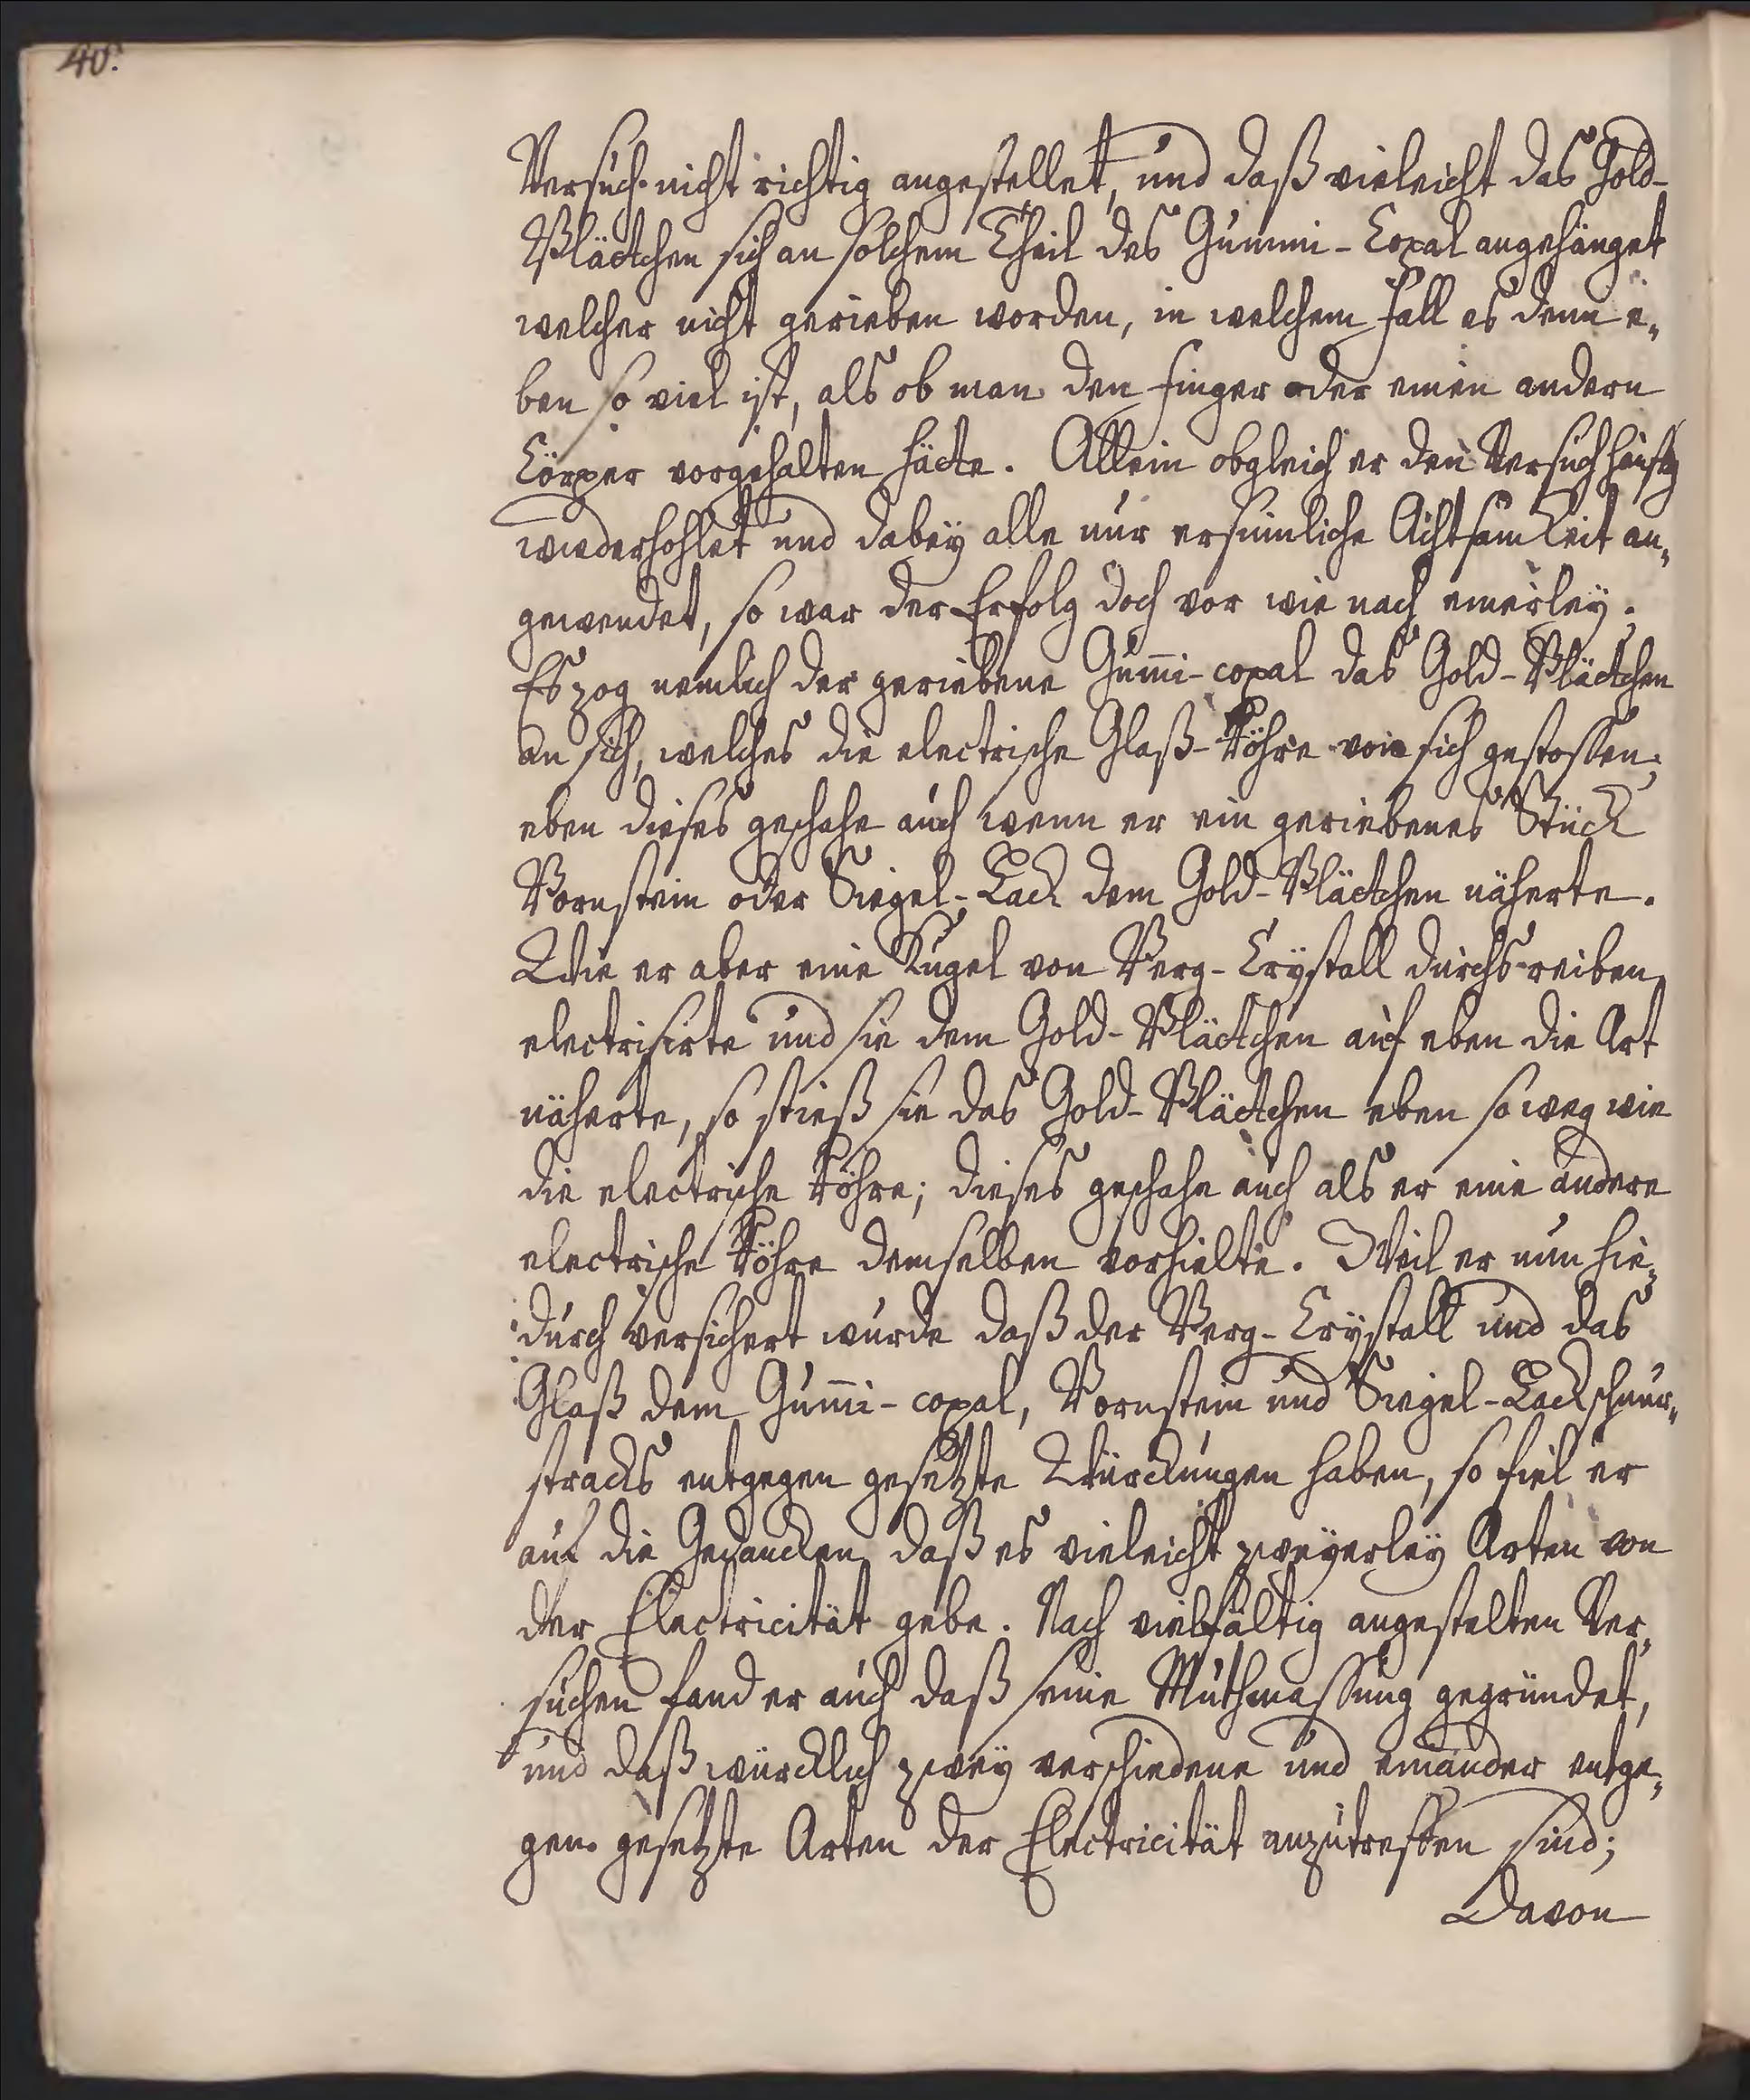 40.
Versuch nicht richtig angestellet, und daß vieleicht das Gold-
Blättchen sich an solchem Theil des Gummi-Copal angehänget
welcher nicht gerieben worden, in welchem Fall es denn e„
ben so viel ist, als ob man den Finger oder einen andern
Cörper vorgehalten hätte. Allein obgleich er den Versuch häufig
wiederhohlet und dabeÿ alle nur ersinnliche Achtsamkeit an„
gewendet, so war der Erfolg doch vor wie nach einerleÿ;
Es zog nemlich der geriebene Gum̅i-copal das Gold-Blättchen
an sich, welches die electrische Glaß-Röhre von sich gestossen;
eben dieses geschahe auch wenn er ein geriebenes Stück
Bornstein oder Siegel-Lack dem Gold-Blättchen näherte.
Wie er aber eine Kugel von Berg-Crÿstall durchs reiben
electrisirte und sie dem Gold-Blättchen auf eben die Art
näherte, so stieß sie das Gold-Blättchen eben so weg wie
die electrische Röhre; dieses geschahe auch als er eine andere
electrische Röhre demselben vorhielte. Weil er nun hie„
durch versichert wurde daß der Berg-Crÿstall und das
Glaß dem Gum̅i-copal, Bornstein und Siegel-Lack schnur„
stracks entgegen gesetzte Würckungen haben, so fiel er
auf die Gedancken daß es vieleicht zweÿerleÿ Arten von
der Electricität gebe. Nach vielfältig angestelten Ver„
suchen fand er auch daß seine Muthmassung gegründet,
und daß würcklich zweÿ verschiedene und einander entge„
gen gesetzte Arten der Electricität anzutreffen sind;
Davon